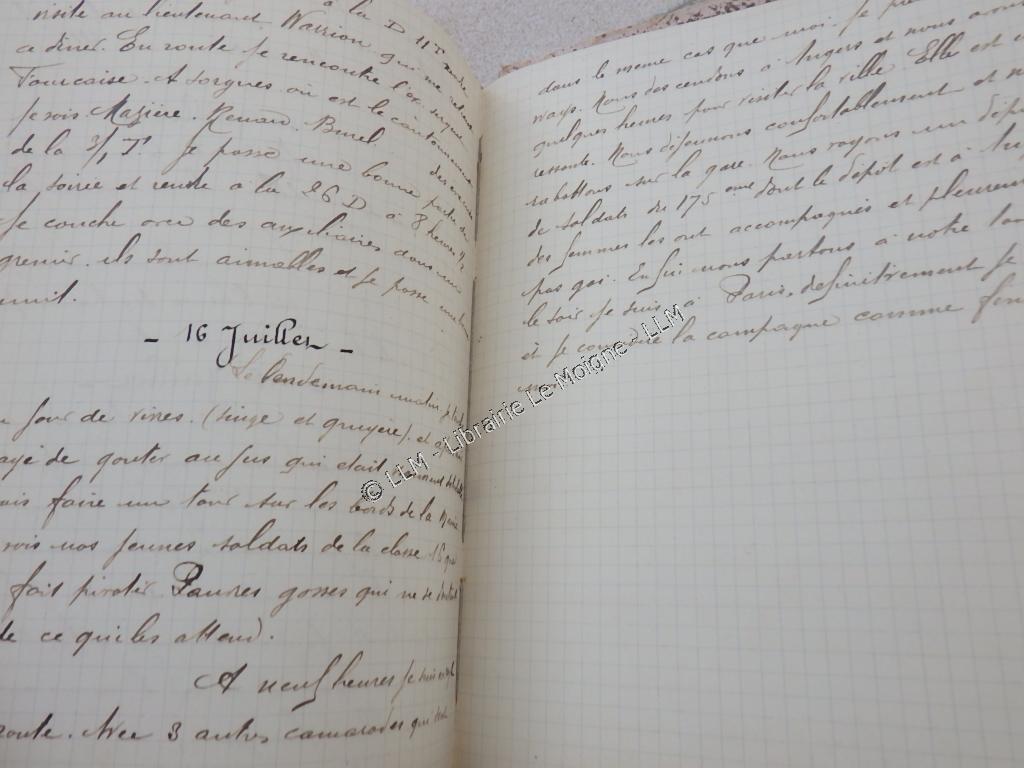 à la D 11 T
visite au lieutenant Warrion qui me
a diner. En route je rencontre
Foucaise. A Sorgues où est le cantonnement
Je vois Mazière. Renard. Burel.
de la 3/1 T. Je passe une bonne partie de
la soirée et rentre à la 26 D à 8 heures
Je couche avec des auxiliaires dans un
grenier. ils sont aimables et je passe une bonne
nuit.
- 16 Juillet -
Le lendemain matin, je
jour de vivres. (singe et gruyère), et
de gouter au jus qui était
faire un tour sur les bords de la
vois nos jeunes soldats de la classe 16 que
fait pivoter Pauvres gosses qui ne se doutent
de ce qui les attend.
A neuf heures je suis
route. Avec 3 autres camarades qui
dans le même cas que moi. Je
ways. Nous descendons à Angers et nous avons
quelques heures pour visiter la ville. Elle est
ressante. Nous déjeunons confortablement et nous
rabattons sur la gare. Nous voyons un départ
de soldats du 175 eme dont le dépôt est à
des femmes les ont accompagnés et pleurent
pas gai. Enfin nous partons à notre tour
le soir je suis à Paris, définitivement je
et je la campagne comme
© LLM - Librairie Le Moigne - LLM